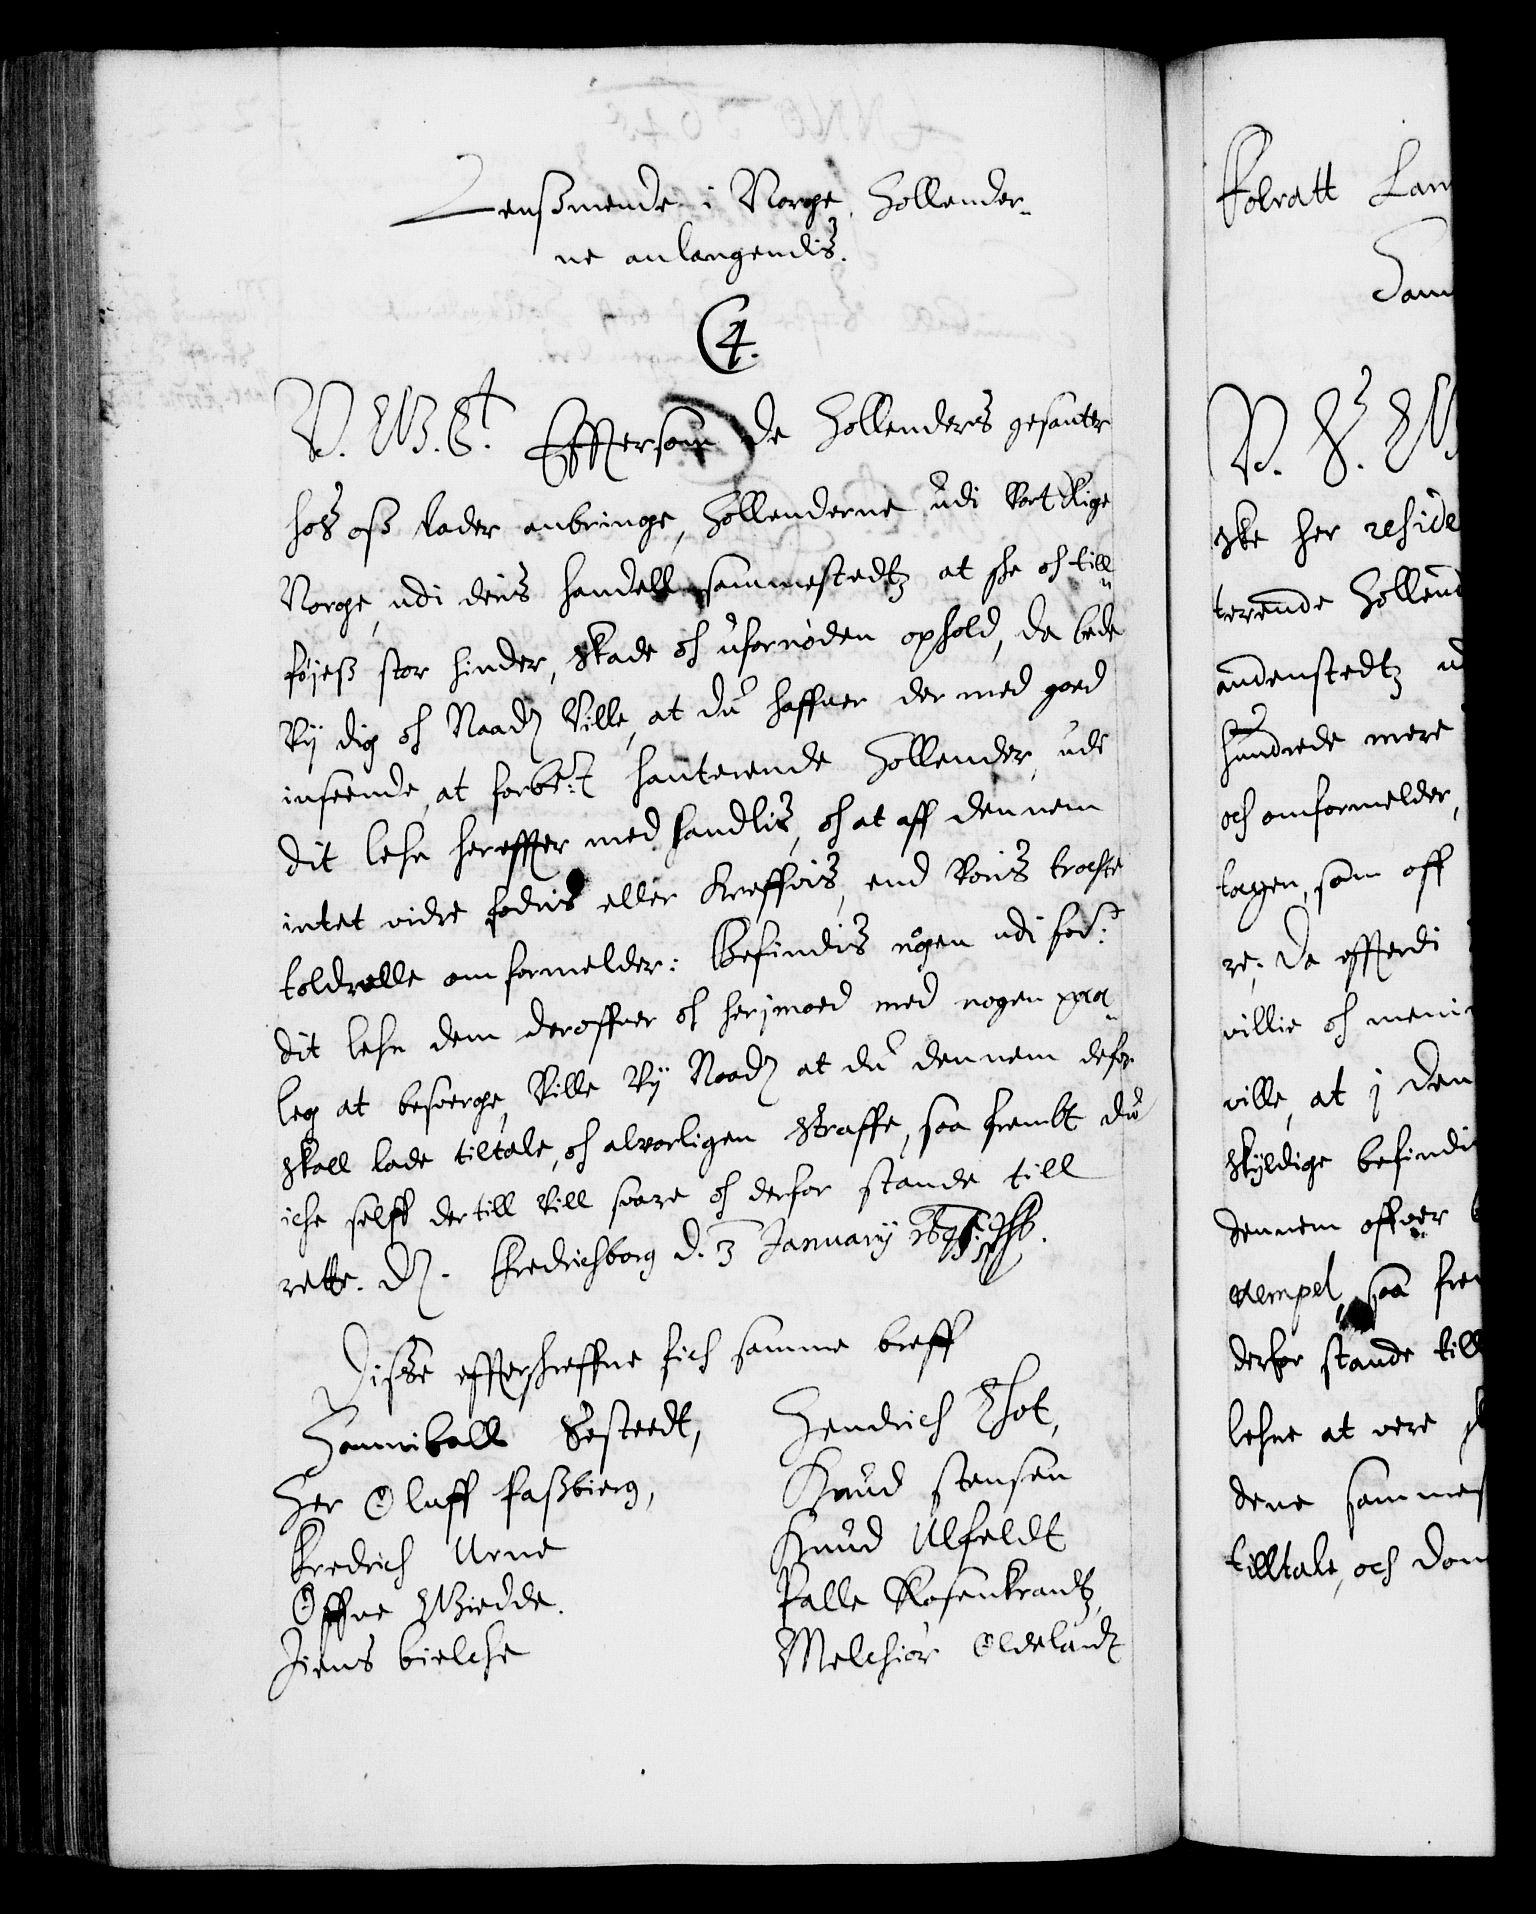 Lenßmende i Norge, Hollender-
ne anlangendis.
C 4.
V. G. T. Effterson de Hollenders gesanter
hoß oß lader anbringe, Hollenderne udi Vort Rige
Norge, udi deris handell sammestedtz at ske oh till
føjeß stor hinder, skade oh ufornøden ophold, da bede
Vij dig oh Naadz Ville, at du haffuer der med goed
inseende, at forbe:t hanterende Hollender, udi
dit lehn hereffter med handlis, oh at aff dennem
intet vidre fodris eller kreffvis, end Voris trochte
toldrolle om formelder: Befindis nogen udi for:
dit lehn dem deroffuer oh herimoed med nogen paa-
leg at besverge, Ville Vij Naadz at du dennem defor
skall lade tiltale, oh alvorligen straffe, saa frembt du
iche self der till Vill svare oh derfor stande till
rette. Dz. Fredrichsborg d. 3 January
Disse effterschreffne fich samme breff
Hanniball Sesteedt, Hendrich Thot,
Her Oluff Paßbierg, Knud stensen
Fredrich Urne Knud Ulfeldt
Offue Giedde. Palle Rosenkrandtz,
Jiens bielche Melchior Oldelandt
Folratt Lan
Dan
V. S. G
ske her reside
terende Hollend
andenstedtz u
hundrede mere
och omformelder,
tagen, som off
re; Da effterdi
villie oh meni
ville, at j den
skyldige befindi
dennem offuer
exempel, saa fre
derfor stande till
lehne at vere
dene sammes
tilltale, och dom